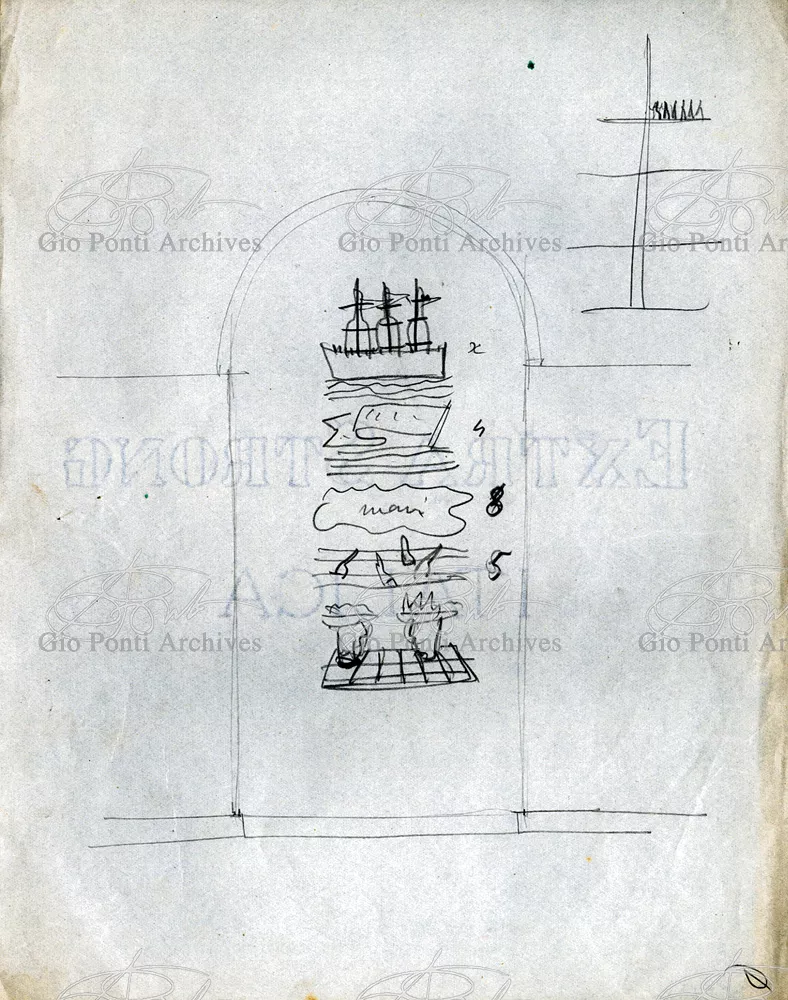 Gio Ponti Archives Gio Ponti Archives Gio Ponti Ar
x
4
EXTRA STRONG
mani
8
5
Gio Ponti Archives Gio Ponti Archives Gio Ponti Ar